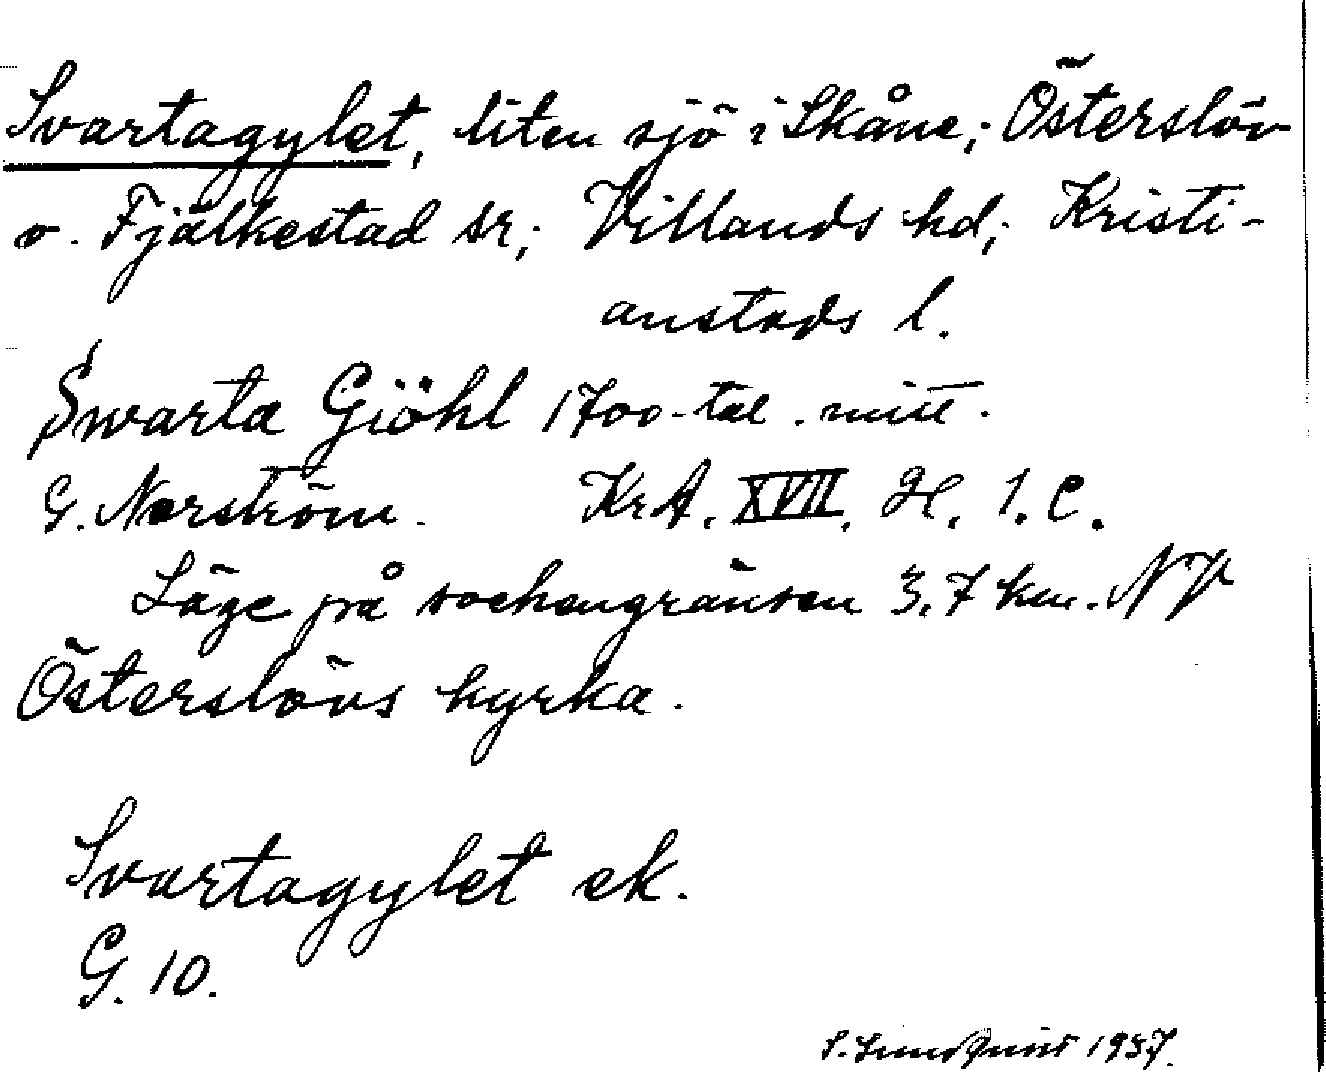 Svartagylet, liten sjö i Skåne; Österslöv
o. Fjälkestad sr; Villands hd; Kristi-
anstads l.
Swarta Giöhl 1700-tal. mitt.
G. Norström. KrA. XVII. H. 1. C.
Läge på sockengränsen 3.7 km. NV
Österslövs kyrka.
Svartagylet ek.
G. 10.
S. Lundquist 1937.